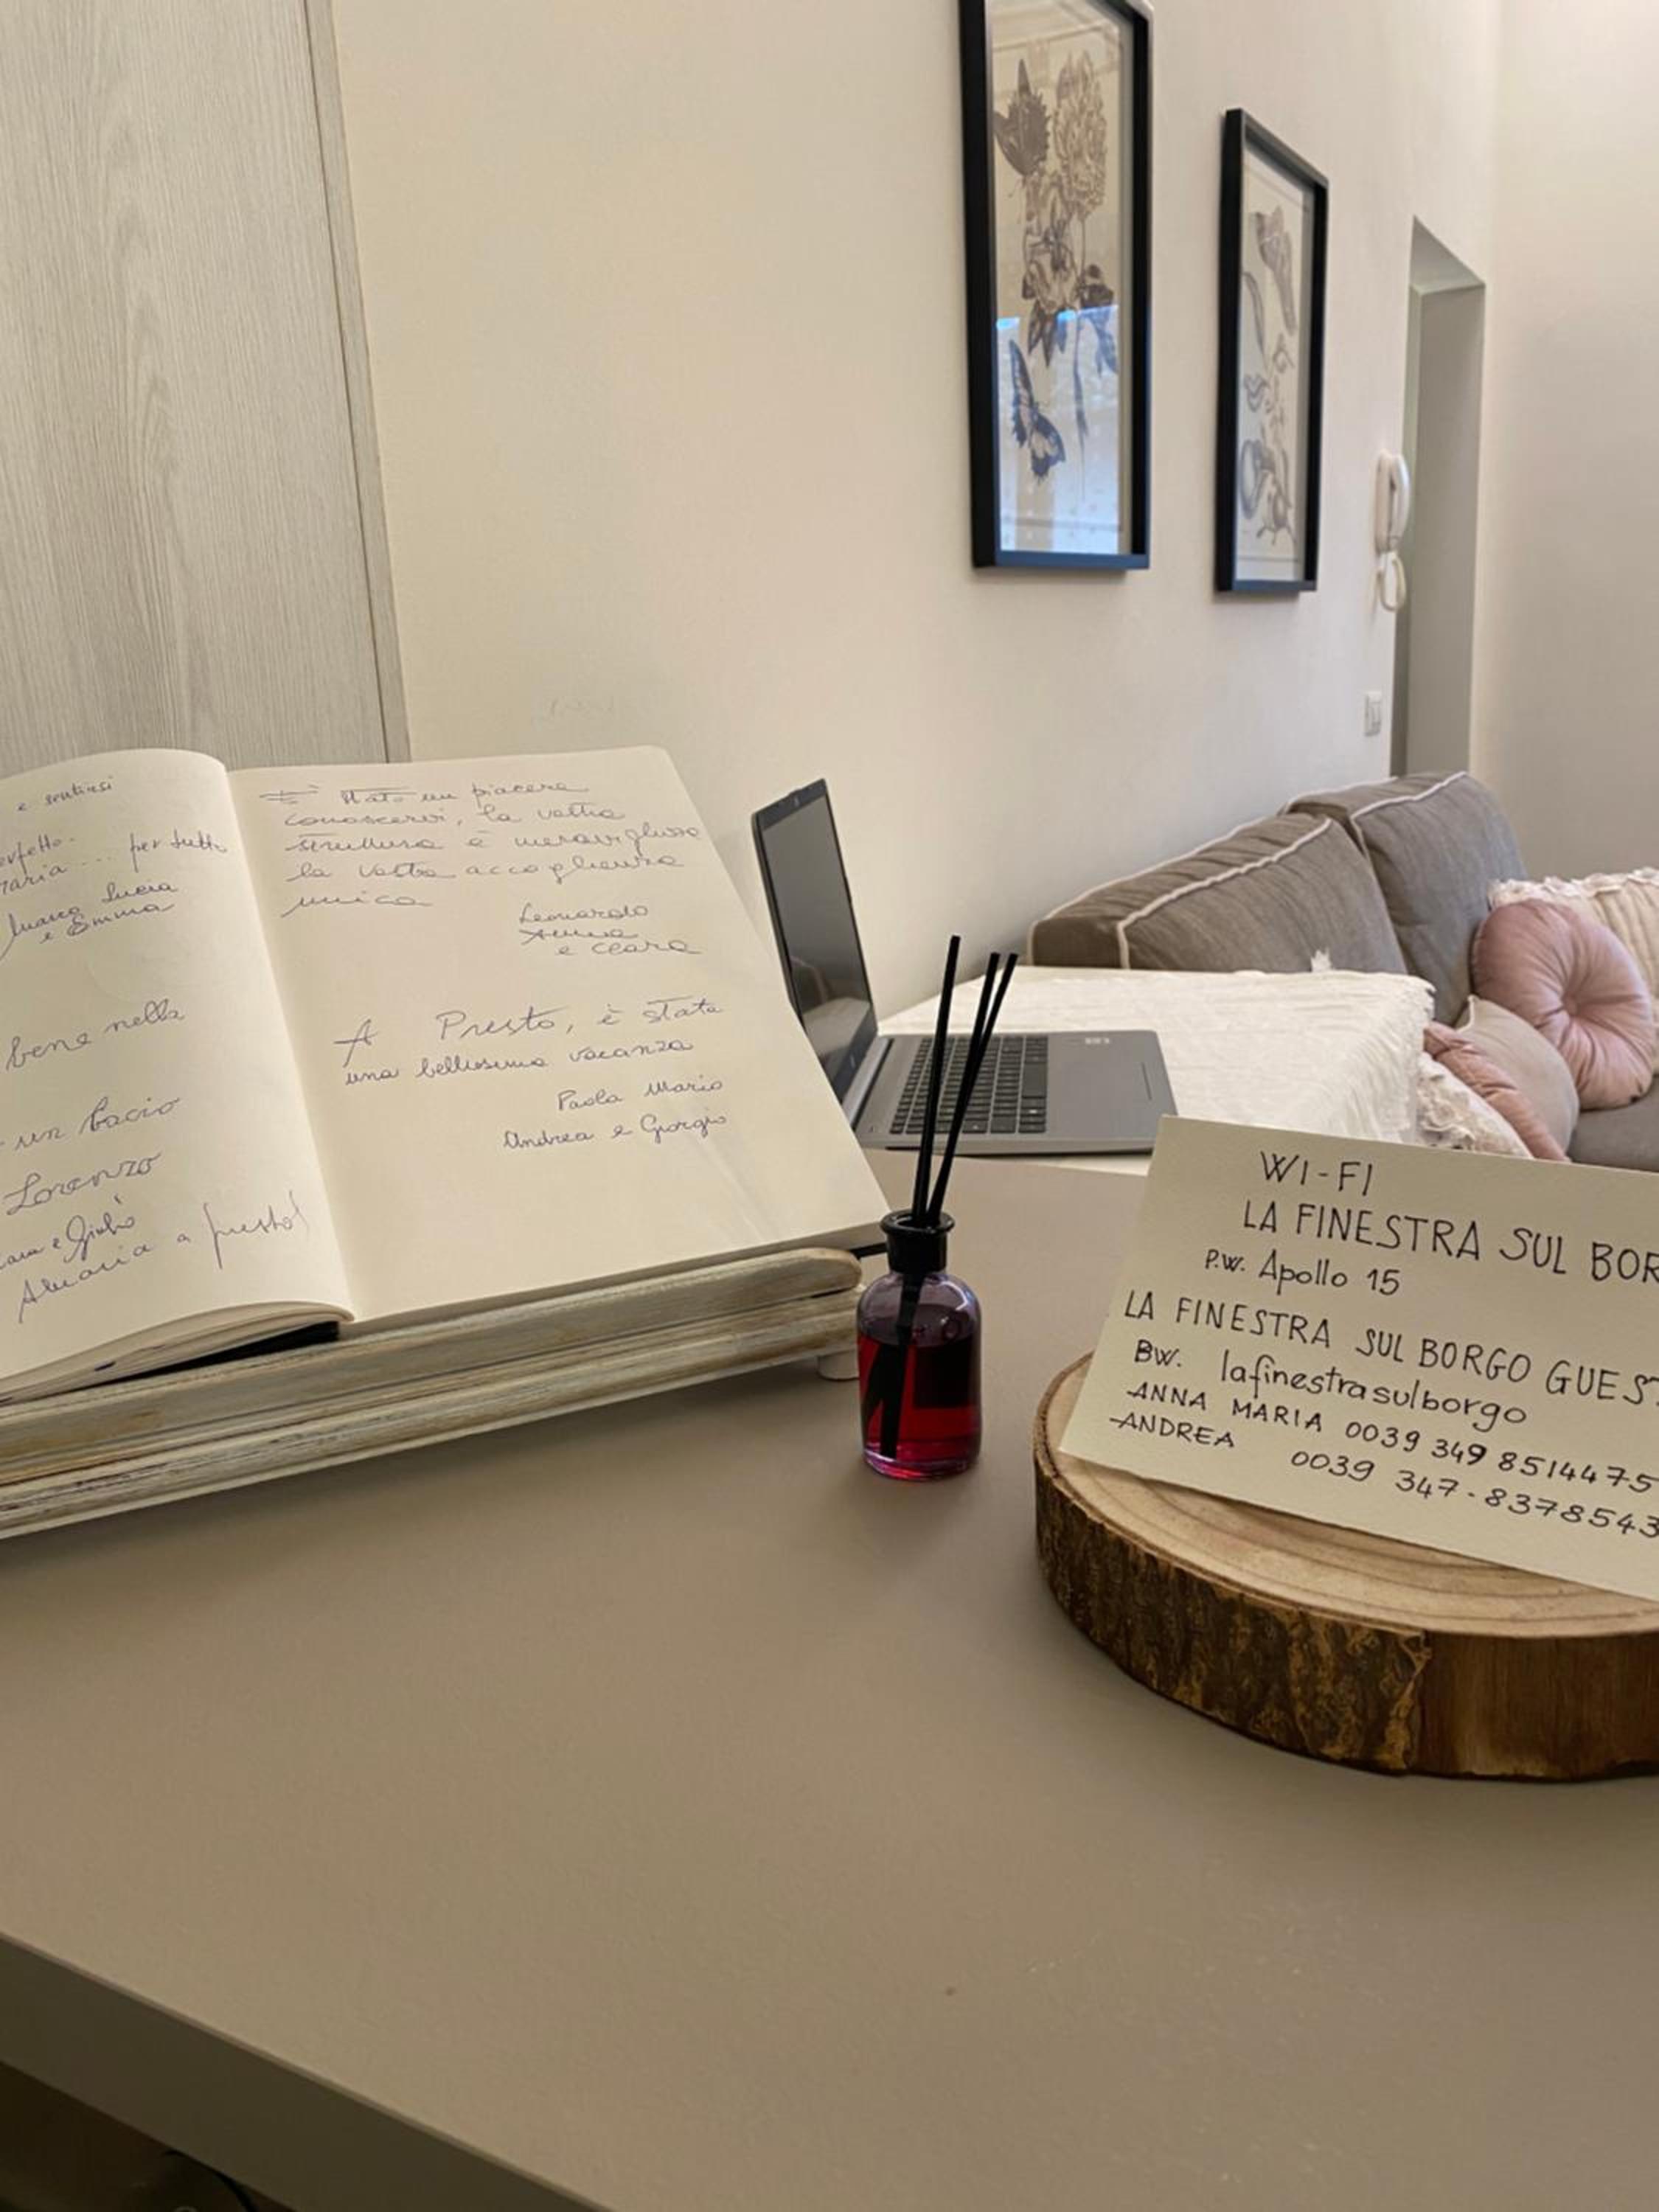 e sentirsi
perfetto.
per tutto
Marco Lucia
e Emma
bene nella
un bacio
Lorenzo
e Giulio
a presto!
È stato un piacere
conoscervi, la vostra
struttura è meravigliosa
la vostra accoglienza
unica
Leonardo
Anna
e Clara
A Presto, è stata
una bellissima vacanza
Paola Mario
Andrea e Giorgio
WI-FI
LA FINESTRA SUL BOR
P.W. Apollo 15
LA FINESTRA SUL BORGO GUEST
BW. lafinestrasulborgo
ANNA MARIA 0039 349 8514475
ANDREA 0039 347-8378543